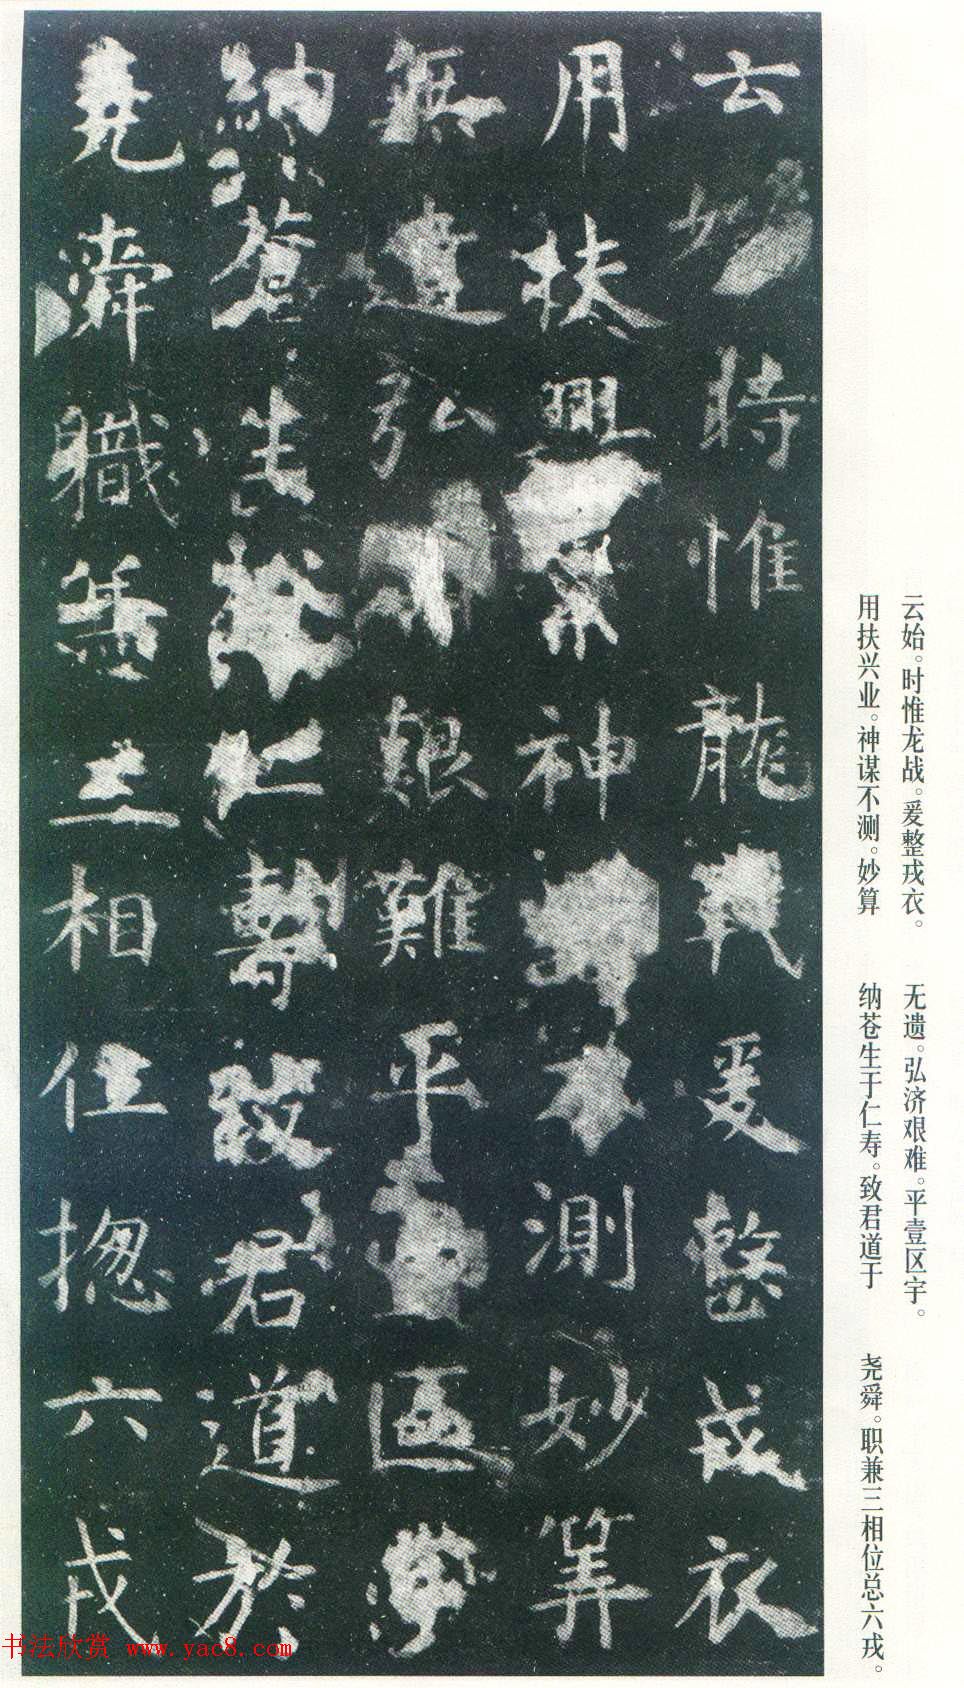 云始。时惟龙战。爰整戎衣。
用扶兴业。神谋不测。妙算
无遗。弘济艰难。平壹区宇。
纳苍生于仁寿。致君道于
尧舜。职兼三相位总六戎。
云始時惟龍戰爰整戎衣
用扶興業神謀不測妙筭
無遺弘濟艱難平壹區宇
納蒼生於仁壽致君道於
堯舜職兼三相位揔六戎
书法欣赏 www.yac8.com